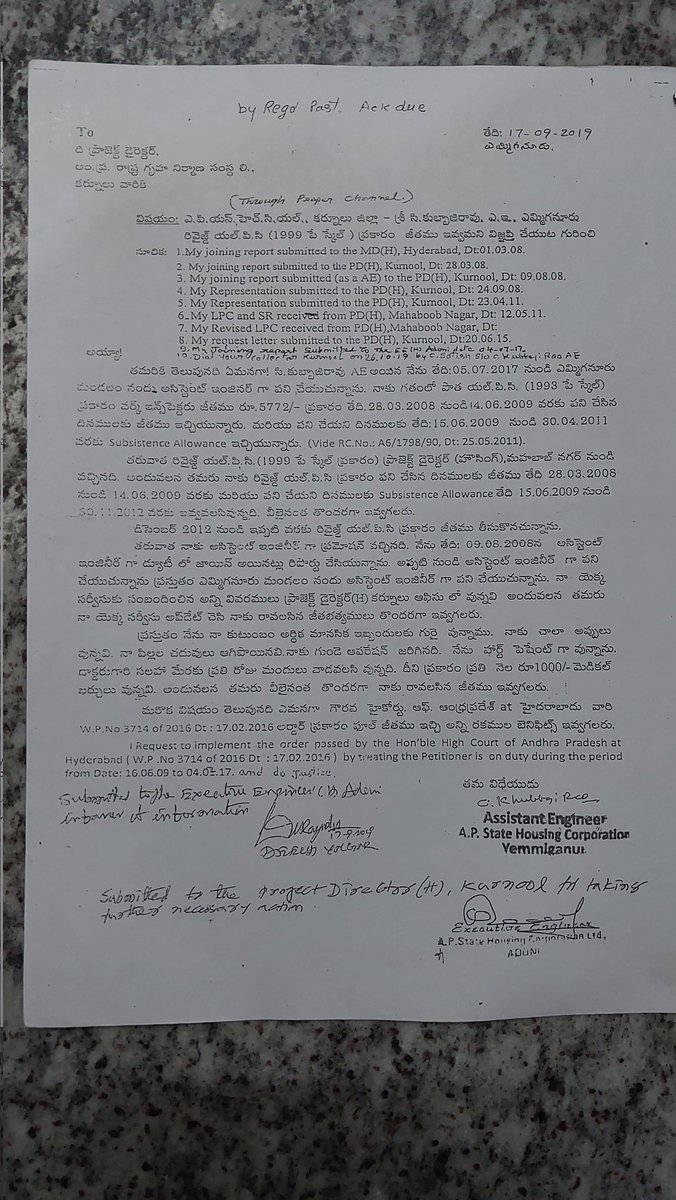 by Regd Post. Ack due
To
తేది: 17-09-2019
ది ప్రాజెక్ట్ డైరెక్టర్.
ఎమ్మిగనూరు.
ఆం.ప్ర. రాష్ట్ర గృహ నిర్మాణ సంస్థ లి.,
కర్నూలు వారికి
(Through Proper Channel.)
విషయం: ఎ.పి.యస్.హెచ్.సి.యల్., కర్నూలు జిల్లా - శ్రీ సి.కుబ్బాజిరావు. ఎ.ఇ. ఎమ్మిగనూరు
రివైజ్డ్ యల్.పి.సి (1999 పే స్కేల్ ) ప్రకారం జీతము ఇవ్వమని విజ్ఞప్తి చేయుట గురించి
సూచిక: 1.My joining report submitted to the MD(H), Hyderabad, Dt:01.03.08.
2. My joining report submitted to the PD(H), Kurnool, Dt: 28.03.08.
3. My joining report submitted (as a AE) to the PD(H), Kurnool, Dt: 09.08.08.
4. My Representation submitted to the PD(H), Kurnool, Dt: 24.09.08.
5. My Representation submitted to the PD(H), Kurnool, Dt: 23.04.11.
6. My LPC and SR received from PD(H), Mahaboob Nagar, Dt: 12.05.11.
7. My Revised LPC received from PD(H),Mahaboob Nagar, Dt:
8. My request letter submitted to the PD(H), Kurnool, Dt:20.06.15.
9. My Joining report submitted to the EE(H) Adoni, date 04-07-17
అయ్యా!
10. Dial your collector Kurnool on 26.10.19 by C. Satish S/o C. Kubbaji Rao AE
తమరికి తెలుపునది ఏమనగా! సి.కుబ్బాజిరావు AE అయిన నేను తేది:05.07.2017 నుండి ఎమ్మిగనూరు
మండలం నందు అసిస్టెంట్ ఇంజినర్ గా పని చేయుచున్నాను. నాకు గతంలో పాత యల్.పి.సి. (1993 పే స్కేల్)
ప్రకారం వర్క్ ఇన్స్‌పెక్టరు జీతము రూ.5772/- ప్రకారం తేది.28.03.2008 నుండి14.06.2009 వరకు పని చేసిన
దినములకు జీతము ఇచ్చియున్నారు. మరియు పని చేయని దినములకు తేది:15.06.2009 నుండి 30.04.2011
వరకు Subsistence Allowance ఇచ్చియున్నారు. (Vide RC.No.: A6/1798/90, Dt: 25.05.2011).
తరువాత రివైజ్డ్ యల్.పి.సి.(1999 పే స్కేల్ ప్రకారం) ప్రాజెక్ట్ డైరెక్టర్ (హౌసింగ్),మహబాబ్ నగర్ నుండి
వచ్చినది. అందువలన తమరు నాకు రివైజ్డ్ యల్.పి.సి ప్రకారం పని చేసిన దినములకు జీతము తేది 28.03.2008
నుండి 14.06.2009 వరకు మరియు పని చేయని దినములకు Subsistence Allowance తేది 15.06.2009 నుండి
30.11.2012 వరకు ఇవ్వవలసివున్నది. వీలైనంత తొందరగా ఇవ్వగలరు.
డిసెంబర్ 2012 నుండి ఇప్పటి వరకు రివైజ్డ్ యల్.పి.సి ప్రకారం జీతము తీసుకొనచున్నాను.
తరువాత నాకు అసిస్టెంట్ ఇంజినీర్ గా ప్రమోషన్ వచ్చినది. నేను తేది: 09.08.2008న అసిస్టెంట్
ఇంజినీర్ గా డ్యూటీ లో జాయిన్ అయినట్లు రిపోర్టు చేసియున్నాను. అప్పటి నుండి అసిస్టెంట్ ఇంజినీర్ గా పని
చేయుచున్నాను ప్రస్తుతం ఎమ్మిగనూరు మండలం నందు అసిస్టెంట్ ఇంజనీర్ గా పని చేయుచున్నాను. నా యెక్క
సర్వీసుకు సంబందించిన అన్ని వివరములు ప్రాజెక్ట్ డైరెక్టర్(H) కర్నూలు ఆఫీసు లో వున్నవి అందువలన తమరు
నా యెక్క సర్వీసు అప్‌డేట్ చేసి నాకు రావలసిన జీతభత్యములు తొందరగా ఇవ్వగలరు.
ప్రస్తుతం నేను నా కుటుంబం ఆర్థిక మానసిక ఇబ్బందులకు గురై వున్నాము. నాకు చాలా అప్పులు
వున్నవి. నా పిల్లల చదువులు ఆగిపోయినవి.నాకు గుండె ఆపరేషన్ జరిగినది. నేను హార్ట్ పేషేంట్ గా వున్నాను.
డాక్టరుగారి సలహా మేరకు ప్రతి రోజు మందులు వాడవలసి వున్నది. దీని ప్రకారం ప్రతి నెల రూ1000/- మెడికల్
ఖర్చులు వున్నవి. అందునలన తమరు వీలైనంత తొందరగా నాకు రావలసిన జీతము ఇవ్వగలరు.
మరొక విషయం తెలుపునది ఎమనగా గౌరవ హైకోర్టు. ఆఫ్. ఆంధ్రప్రదేశ్ at హైదరాబాదు వారి
W.P.NO 3714 of 2016 Dt : 17.02.2016 ఆర్డార్ ప్రకారం పూల్ జీతము ఇచ్చి అన్ని రకముల బెనిఫిట్స్ ఇవ్వగలరు.
I Request to implement the order passed by the Hon'ble High Court of Andhra Pradesh at
Hyderabad ( W.P .No 3714 of 2016 Dt : 17.02.2016 ) by treating the Petitioner is on duty during the period
from Date: 16.06.09 to 04.07.17. and do justice.
తమ విధేయుడు
Submitted to the Executive Engineer (H) Adoni
C. Khubbaji Rao
in favour of information
Assistant Engineer
A.P. State Housing Corporation
17-9-2019
Yemmiganur
Submitted to the Project Director(H), Kurnool for taking
further necessary action.
Executive Engineer
A.P.State Housing Corporation Ltd.,
ADONI